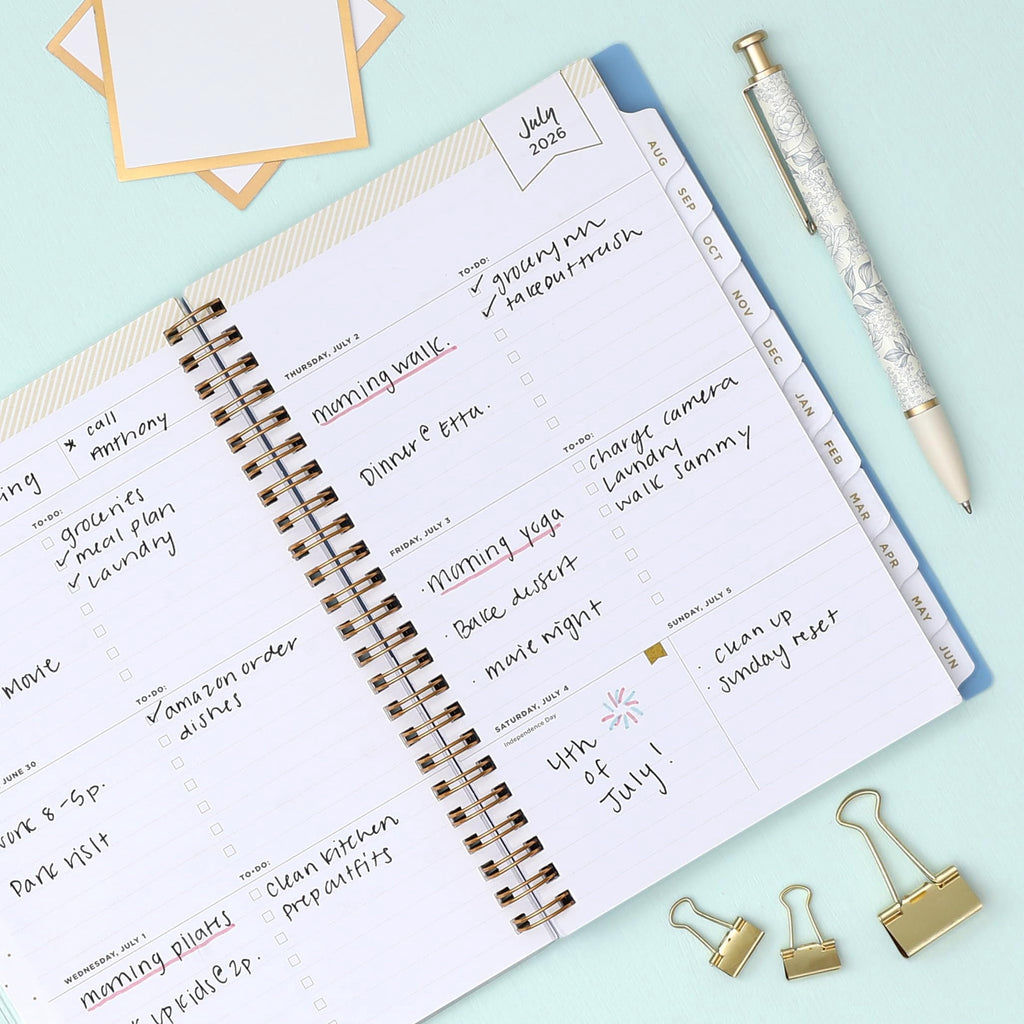 call
Anthony
TO•DO:
groceries
meal plan
laundry
movie
TO•DO:
amazon order
dishes
JUNE 30
work 8-5p.
Park visit
TO•DO:
clean kitchen
prep outfits
WEDNESDAY, JULY 1
morning pilates
kids @ 2p.
July
2026
TO•DO:
grocery run
take out trash
THURSDAY, JULY 2
morning walk.
Dinner @ Etta.
TO•DO:
charge camera
laundry
walk Sammy
FRIDAY, JULY 3
morning yoga
Bake dessert
movie night
SATURDAY, JULY 4
Independence Day
4th
of
July!
SUNDAY, JULY 5
clean up
sunday reset
AUG
SEP
OCT
NOV
DEC
JAN
FEB
MAR
APR
MAY
JUN